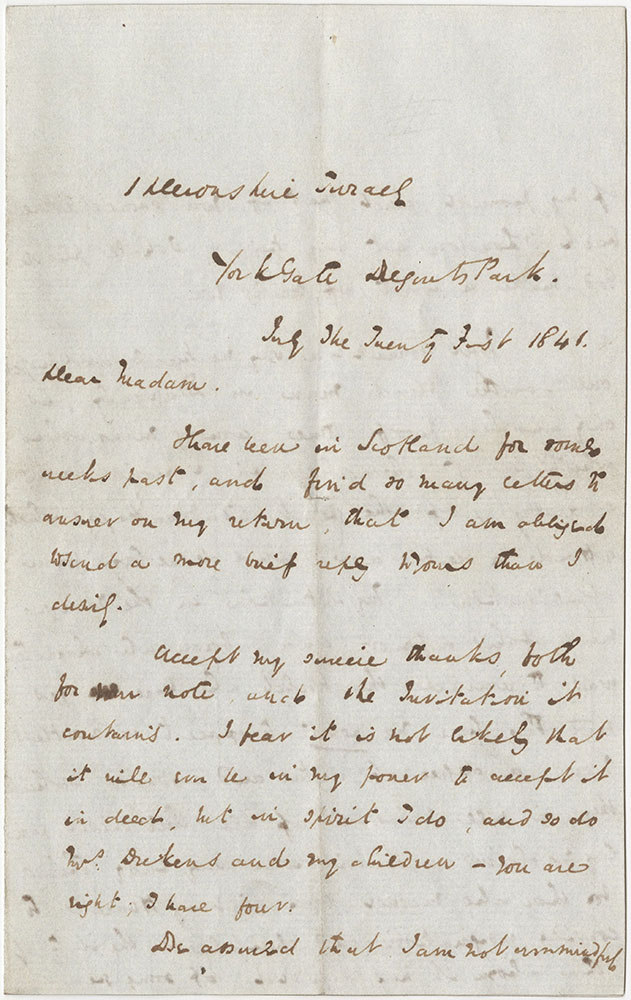 1 Devonshire Terrace
York Gate Regents Park.
July The Twenty First 1841.
Dear Madam.
I have been in Scotland for some
weeks past, and find so many letters to
answer on my return, that I am obliged
to send a more brief reply to yours than I
desire.
Accept my sincere thanks, both
for your note, and the Invitation it
contains. I fear it is not likely that
it will ever be in my power to accept it
in deed, but in spirit I do, and so do
Mrs. Dickens and my children – You are
right; I have four.
Be assured that I am not unmindful